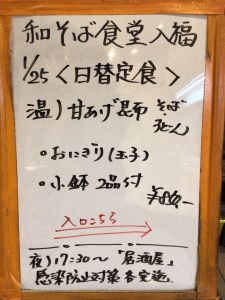 和そば食堂入福
1/25〈日替定食〉
温)甘あげ昆布 そば
うどん
・おにぎり(玉子)
・小鉢 2品付
¥880.-
入口こちら
夜)17:30〜「居酒屋」
感染防止対策 実施